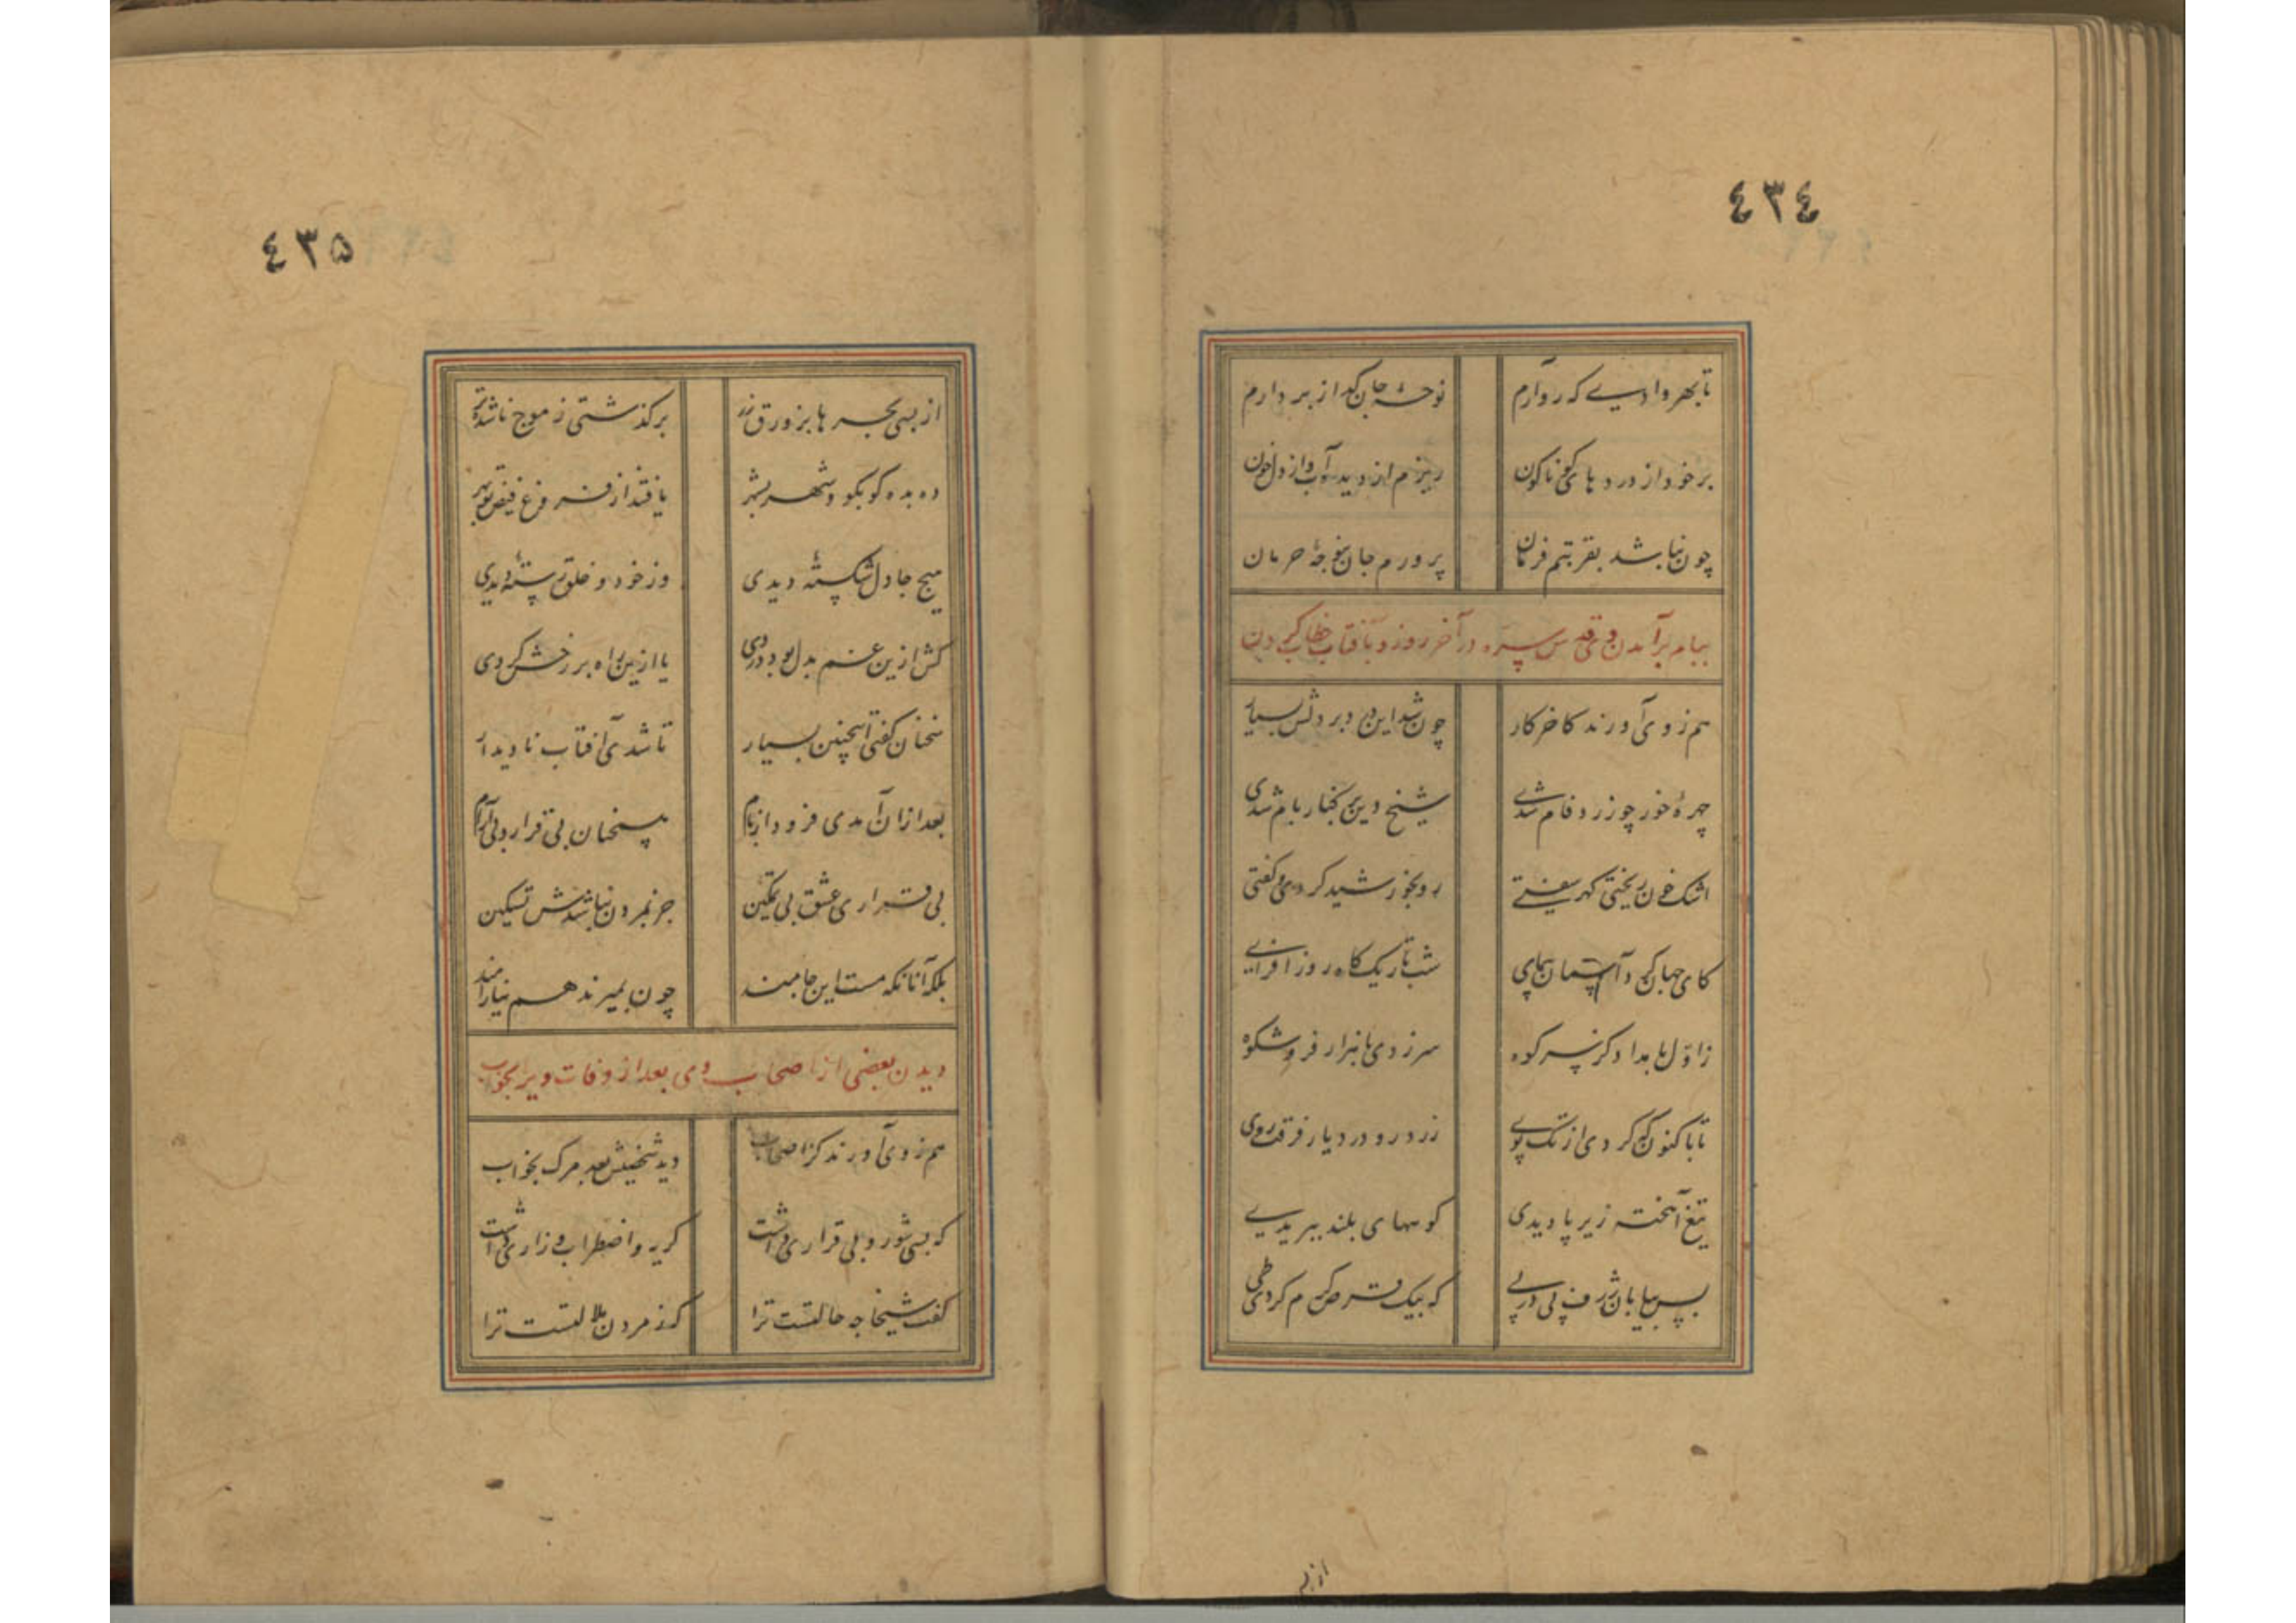 ٤٣٤
تا بهر وادیی که رو آرم نوحهٔ جان گداز بردارم
بر خود از دردهای گوناگون ریزم از دیده آب و از دل خون
چون نباشد بقربتم فرمان پرورم جان بغوجهٔ حرمان
ببام برآمدن وی قدس سره در آخر روز و با آفتاب خطاب کردن
هم ز وی آورند کاخر کار چون شد این درد بر دلش بسیار
چهرهٔ خور چو زرد فام شدی شیخ دین بر کنار بام شدی
اشک خون ریختی گهر سفتی رو بخورشید کردی و گفتی
کای جهان گرد آسمان پیمای شب تاریک کاه روز افزای
ز اول بامداد کز سر کوه سر زدی با هزار فر و شکوه
تا باکنون که کردی از تک و پوی زرد رو در دیار فرقت روی
تیغ آهخته زیر پا دیدی کوههای بلند ببریدی
بس بیابان ژرف پی در پی که بیک قرص گرم کردی طی
از بس
٤٣٥
از بسی بحرها بزورق زر برگذشتی ز موج ناشده تر
ده بده کو بکو و شهر بشهر یافتند از فروغ فیض تو بهر
هیچ جا دل شکستهٔ دیدی وز خود و خلق رستهٔ دیدی
کش ازین غم بدل بود دردی یا ازین راه بر رخش گردی
سخنان گفتی اینچنین بسیار تا شدی آفتاب نادیدار
بعد ازان آمدی فرود از بام همچنان بی قرار و بی آرام
بی قراری عشق بی تمکین جز بمردن نباشدش تسکین
بلکه آنانکه مست این جامند چون بمیرند هم نیارامند
دیدن بعضی از اصحاب وی بعد از وفات ویرا بخواب
هم ز وی آورند کز اصحاب دید شخصیش بعد مرگ بخواب
که بسی شور و بی قراری داشت گریه و اضطراب و زاری داشت
گفت شیخا چه حالتست ترا کز مردن ملالتست ترا